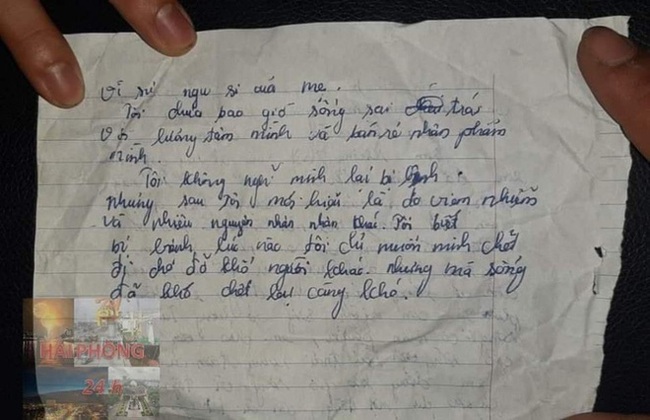 vì sự ngu si của mẹ.
Tôi chưa bao giờ sống sai trái
với lương tâm mình và bán rẻ nhân phẩm
mình.
Tôi không nghĩ mình lại bị bệnh.
nhưng sau tôi mới hiểu là do viêm nhiễm
và nhiều nguyên nhân nhân khác. Tôi biết
bị bệnh lúc nào tôi chỉ muốn mình chết
đi cho đỡ khổ người khác. nhưng mà sống
đã khó chết lại càng khó.
HẢI PHÒNG
24h